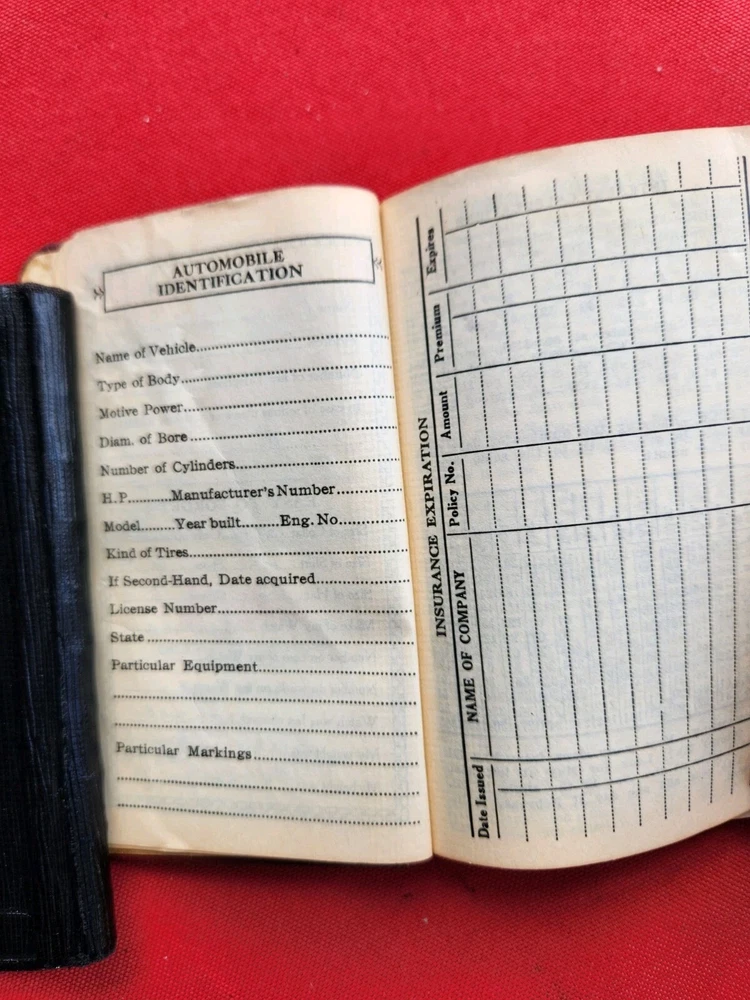 AUTOMOBILE
IDENTIFICATION
Name of Vehicle
Type of Body
Motive Power
Diam. of Bore
Number of Cylinders
H.P. Manufacturer's Number
Model Year built Eng. No.
Kind of Tires
If Second-Hand, Date acquired
License Number
State
Particular Equipment
Particular Markings
INSURANCE EXPIRATION
Date Issued NAME OF COMPANY Policy No. Amount Premium Expires